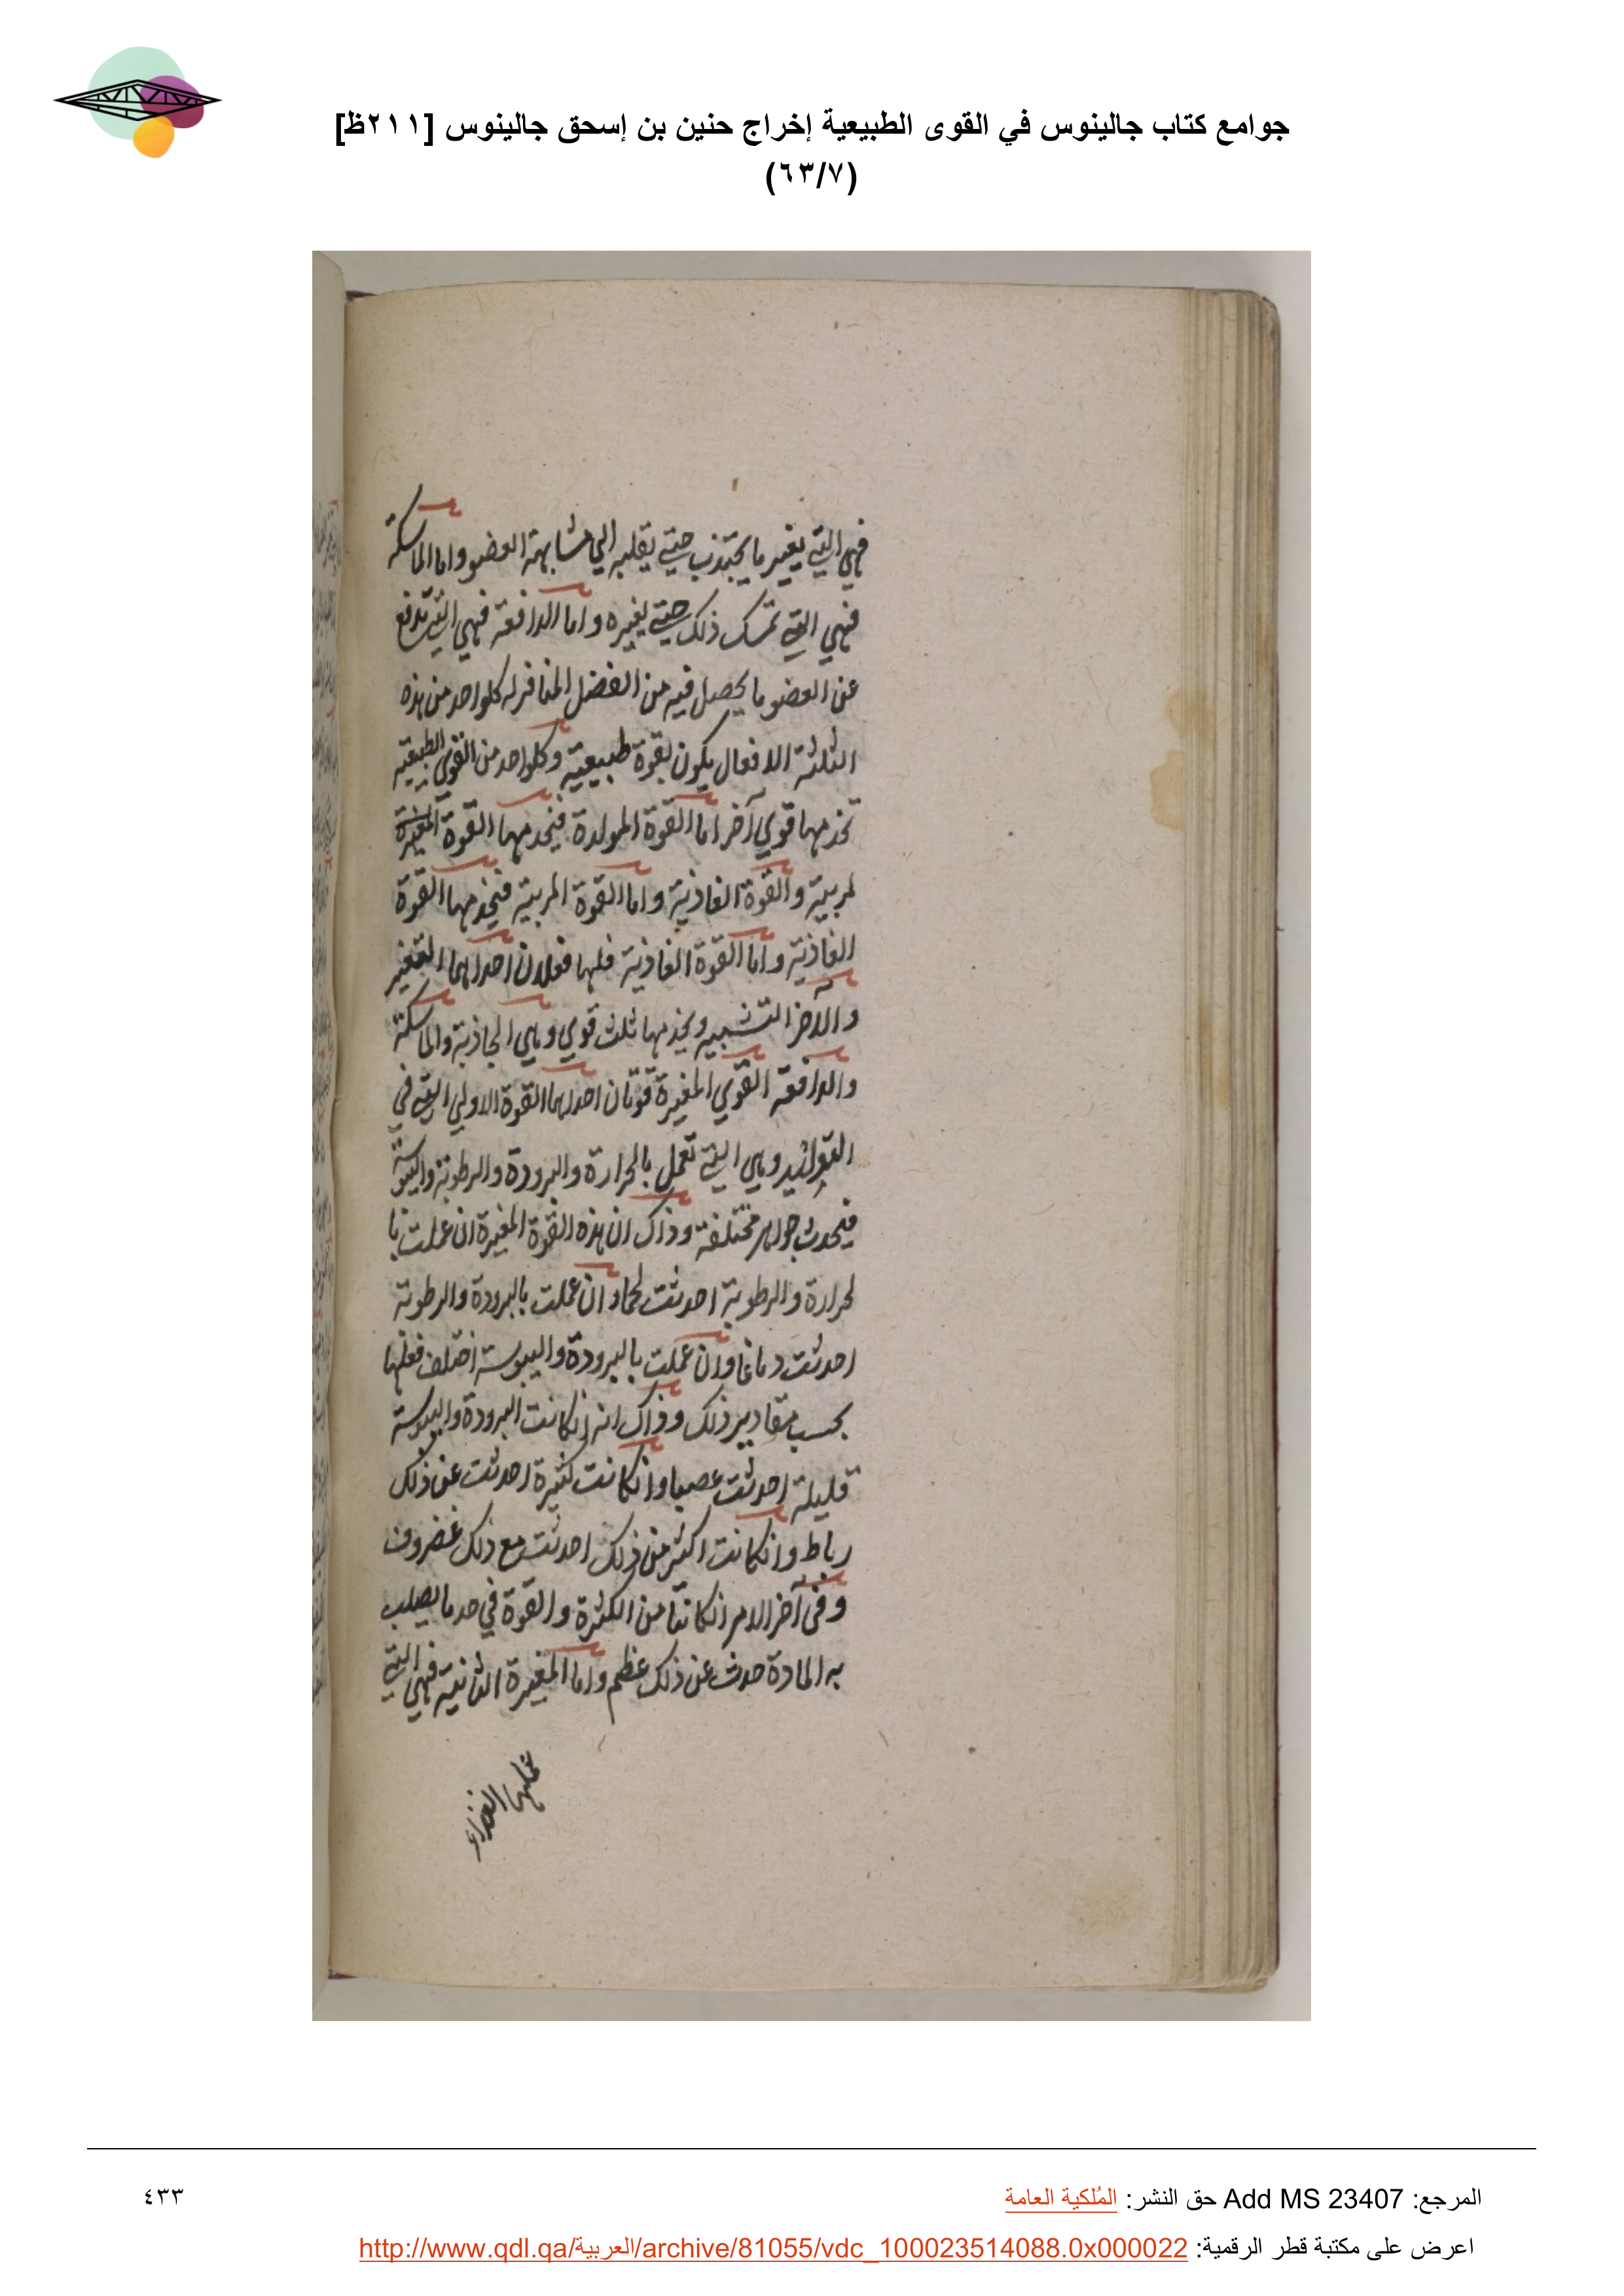 جوامع كتاب جالينوس في القوى الطبيعية إخراج حنين بن إسحق جالينوس [٢١١ظ]
(٦٣/٧)
فهي التي يغير ما يجتذب حتي يقلبه الي مشابهة العضو واما الماسكة
فهي التي تمسك ذلك حتي يغيره واما الدافعة فهي التي تدفع
عن العضو ما يحصل فيه من الفضل المنافر له كلواحد من هذه
الثلثة الافعال يكون بقوة طبيعية وكلواحد من القوي الطبيعية
تخدمها قوي آخر اما القوة المولدة فيخدمها القوة المغيرة
لمربية والقوة الغاذية واما القوة المربية فيخدمها القوة
الغاذية واما القوة الغاذية فلها فعلان احداهما التغير
والآخر التشبيه ويخدمها ثلث قوي وهي الجاذبة والماسكة
والدافعة القوي المغيرة قوتان احداهما القوة الاولي التي في
التوليد وهي التي تعمل بالحرارة والبرودة والرطوبة واليبوسة
فيحدث جواهر مختلفة وذاك ان هذه القوة المغيرة ان عملت با
لحرارة والرطوبة احدثت لحما وان عملت بالبرودة والرطوبة
احدثت دماغا وان عملت بالبرودة واليبوسة اختلف فعلها
بحسب مقادير ذلك وذاك انه انكانت البرودة واليبوسة
قليلة احدثت عصبا وانكانت كثيرة احدثت عن ذلك
رباط وانكانت اكثر من ذلك احدثت مع ذلك غضروف
وفي آخر الامر انكانتا من الكثرة والقوة في حد ما يصلب
به المادة حدث عن ذلك عظم واما المغيرة الثانية فهي التي
عملها الغذاء
المرجع: Add MS 23407 حق النشر: المُلكية العامة
٤٣٣
اعرض على مكتبة قطر الرقمية: http://www.qdl.qa/العربية/archive/81055/vdc_100023514088.0x000022